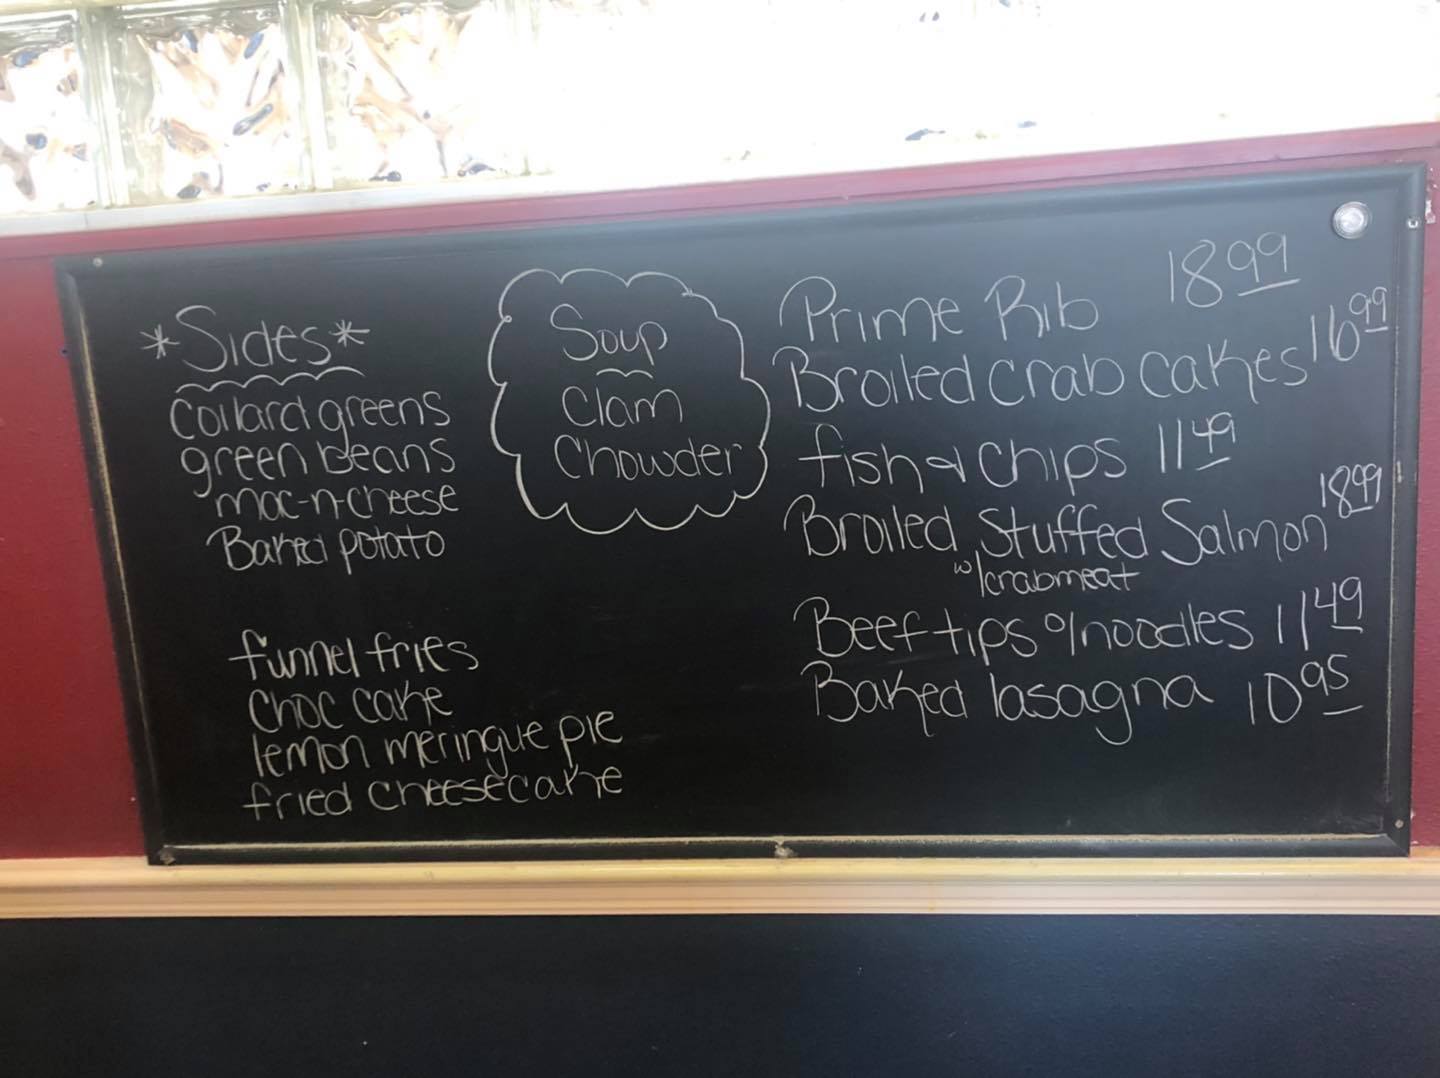 *Sides*
Collard greens
green beans
mac-n-cheese
Baked potato
funnel fries
Choc cake
lemon meringue pie
fried cheesecake
Soup
Clam
Chowder
Prime Rib 18 99
Broiled Crab Cakes 16 99
fish & Chips 11 49
Broiled Stuffed Salmon 18 99
w/crabmeat
Beef tips o/noodles 11 49
Baked lasagna 10 95